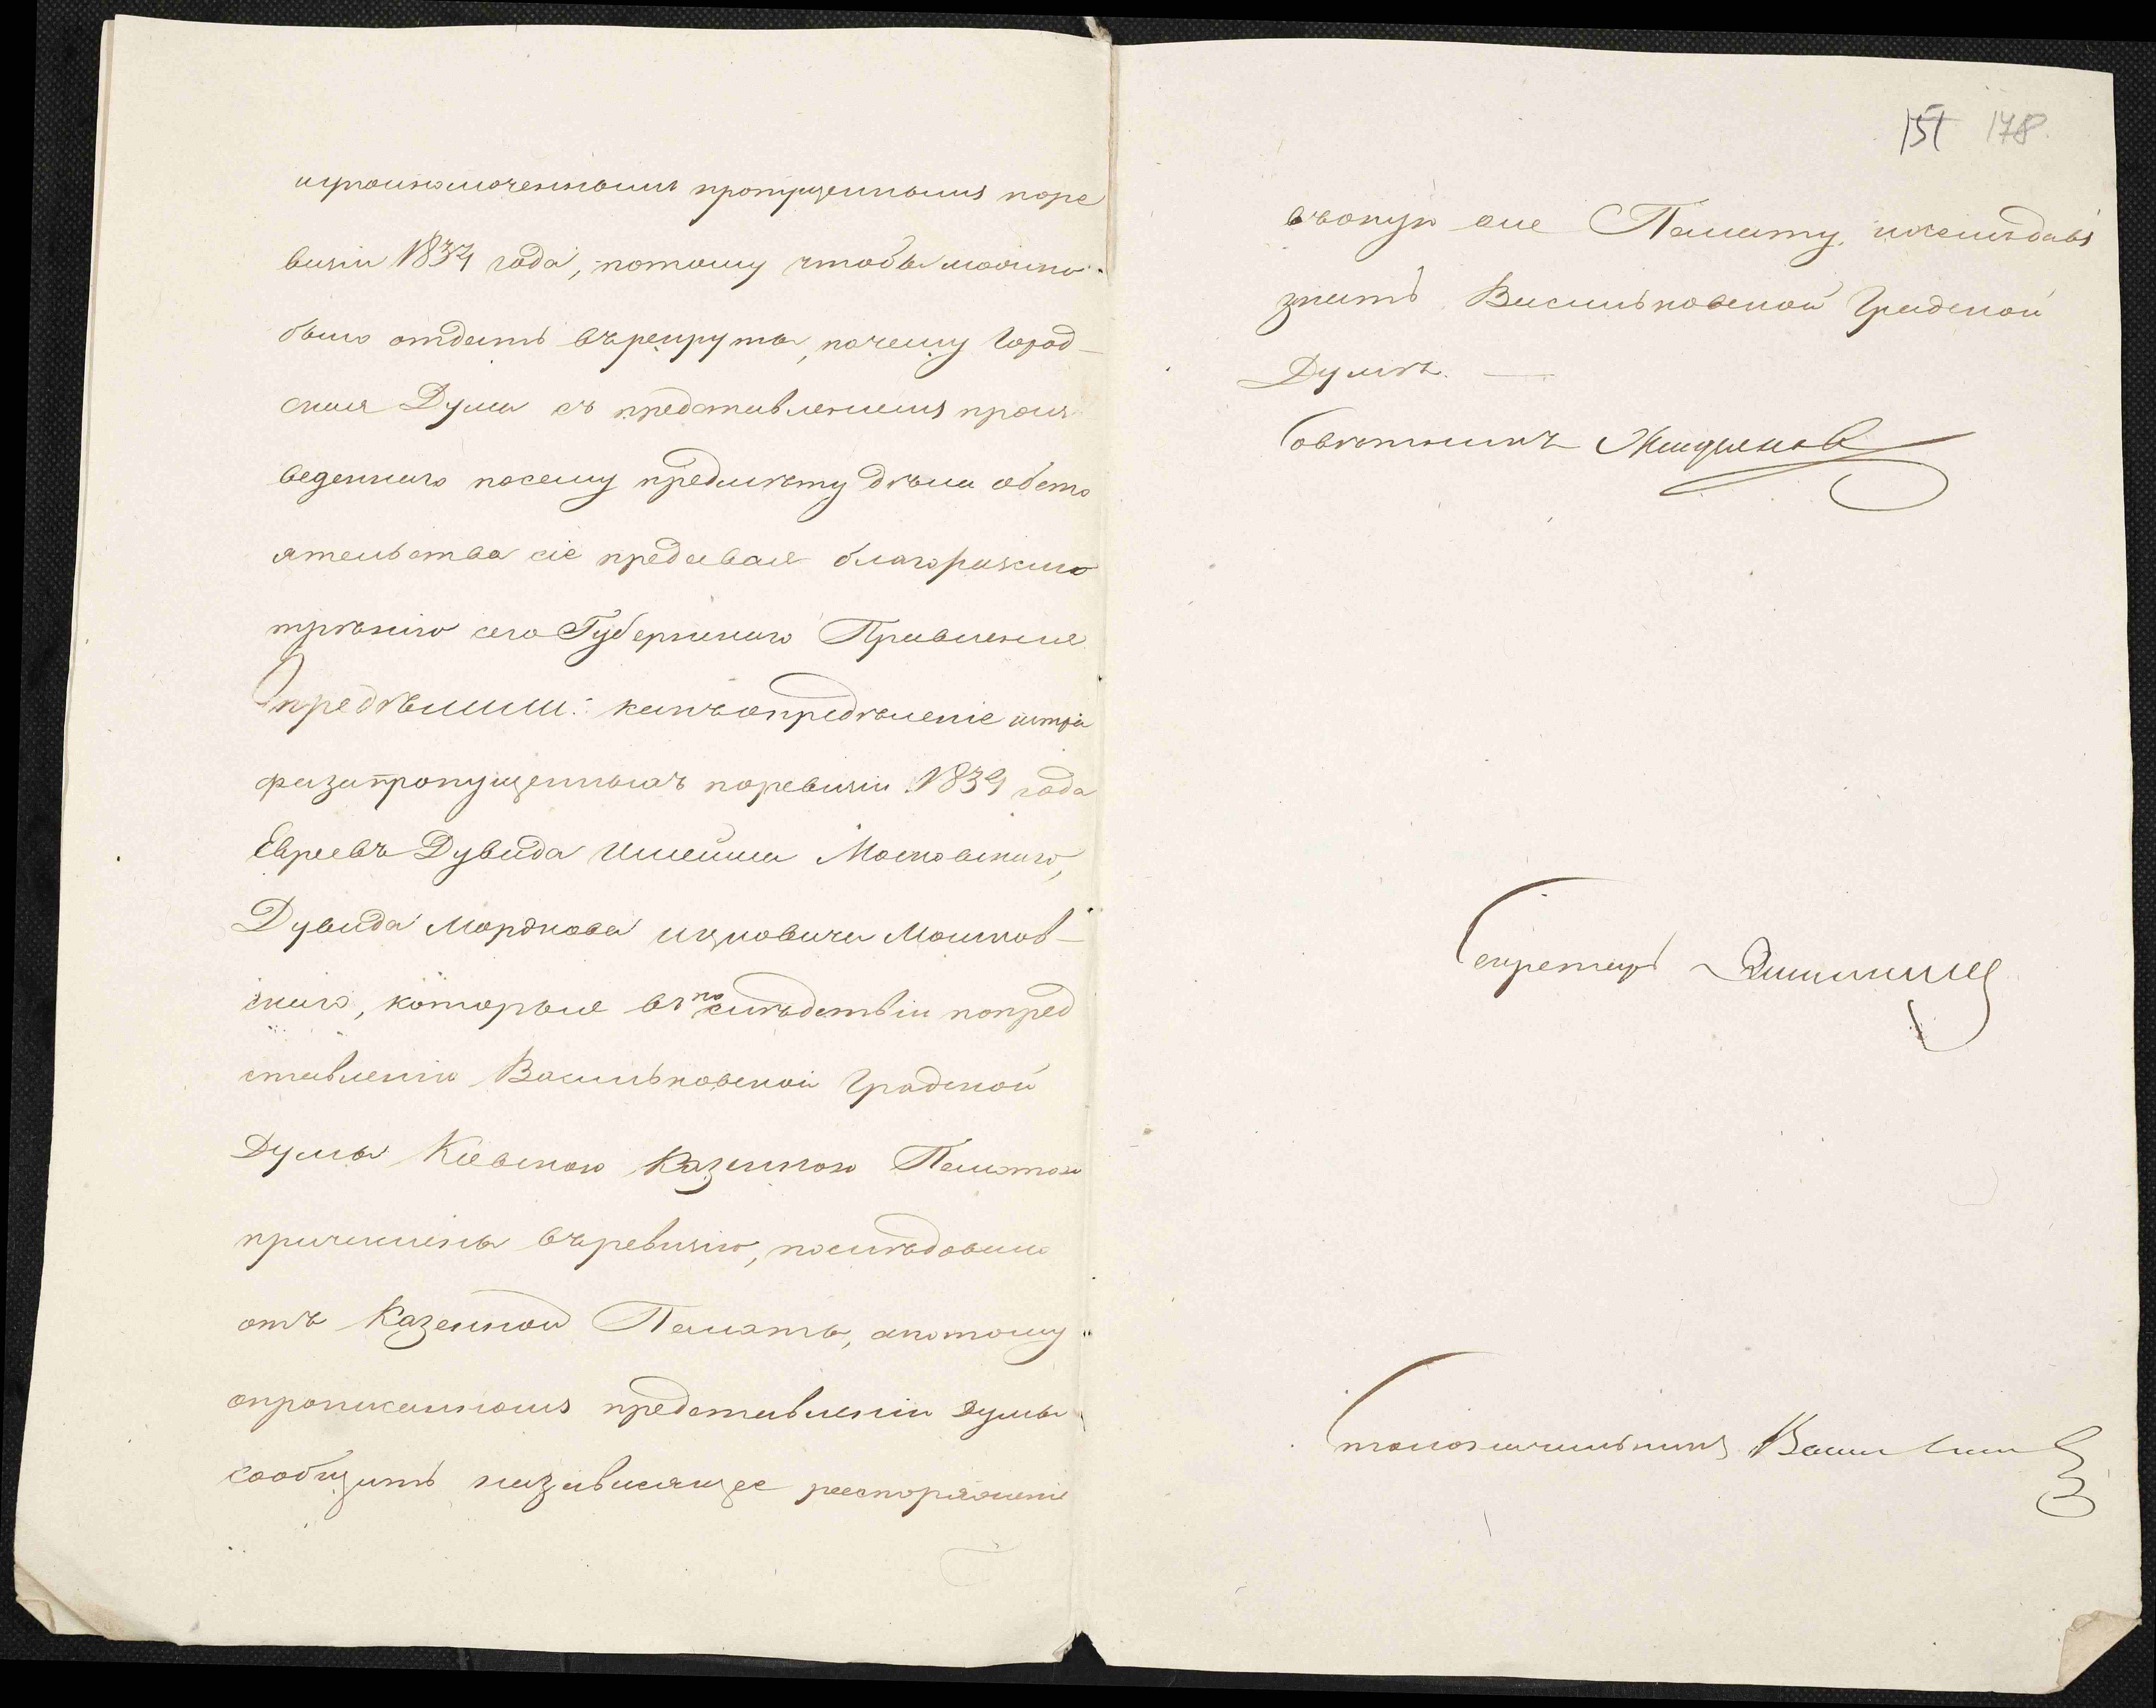 пропущенныхъ поре
визіи 1834 года, потому чтобы можно
было отдать върекруты, почему Город-
ская Дума съ представленіемъ произ
веденнаго посему предмѣту дѣла обсто
ятельства сіе предавая благоразсмо
трѣнію сего Губернскаго Правленія
Опредѣлили: какъ опредѣленіе штра
фа за пропущенныхъ поревизіи 1834 года
Евреевъ Дувида Московскаго,
Дувида Мордкова ицковича Мошков-
скаго, которые въпослѣдствіи попред
ставленію Васильковской Градской
Думы Кіевскою Казенною Палатою
причислены въревизію, послѣдовало
отъ Казенной Палаты, апотому
опрописанномъ представленіи думы
сообщить назависящее распоряженіе
151 178.
въоную Палату, давъ
знать Васильковской Градской
Думѣ. —
Совѣтникъ
Секретарь
Столоначальникъ